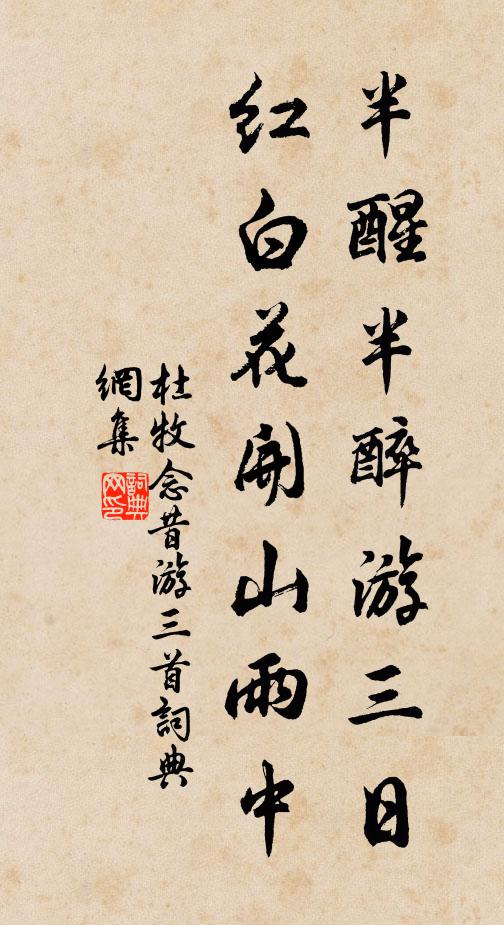 半醒半醉游三日
紅白花開山雨中
杜牧念昔游三首詞典
網集
詞典
网印